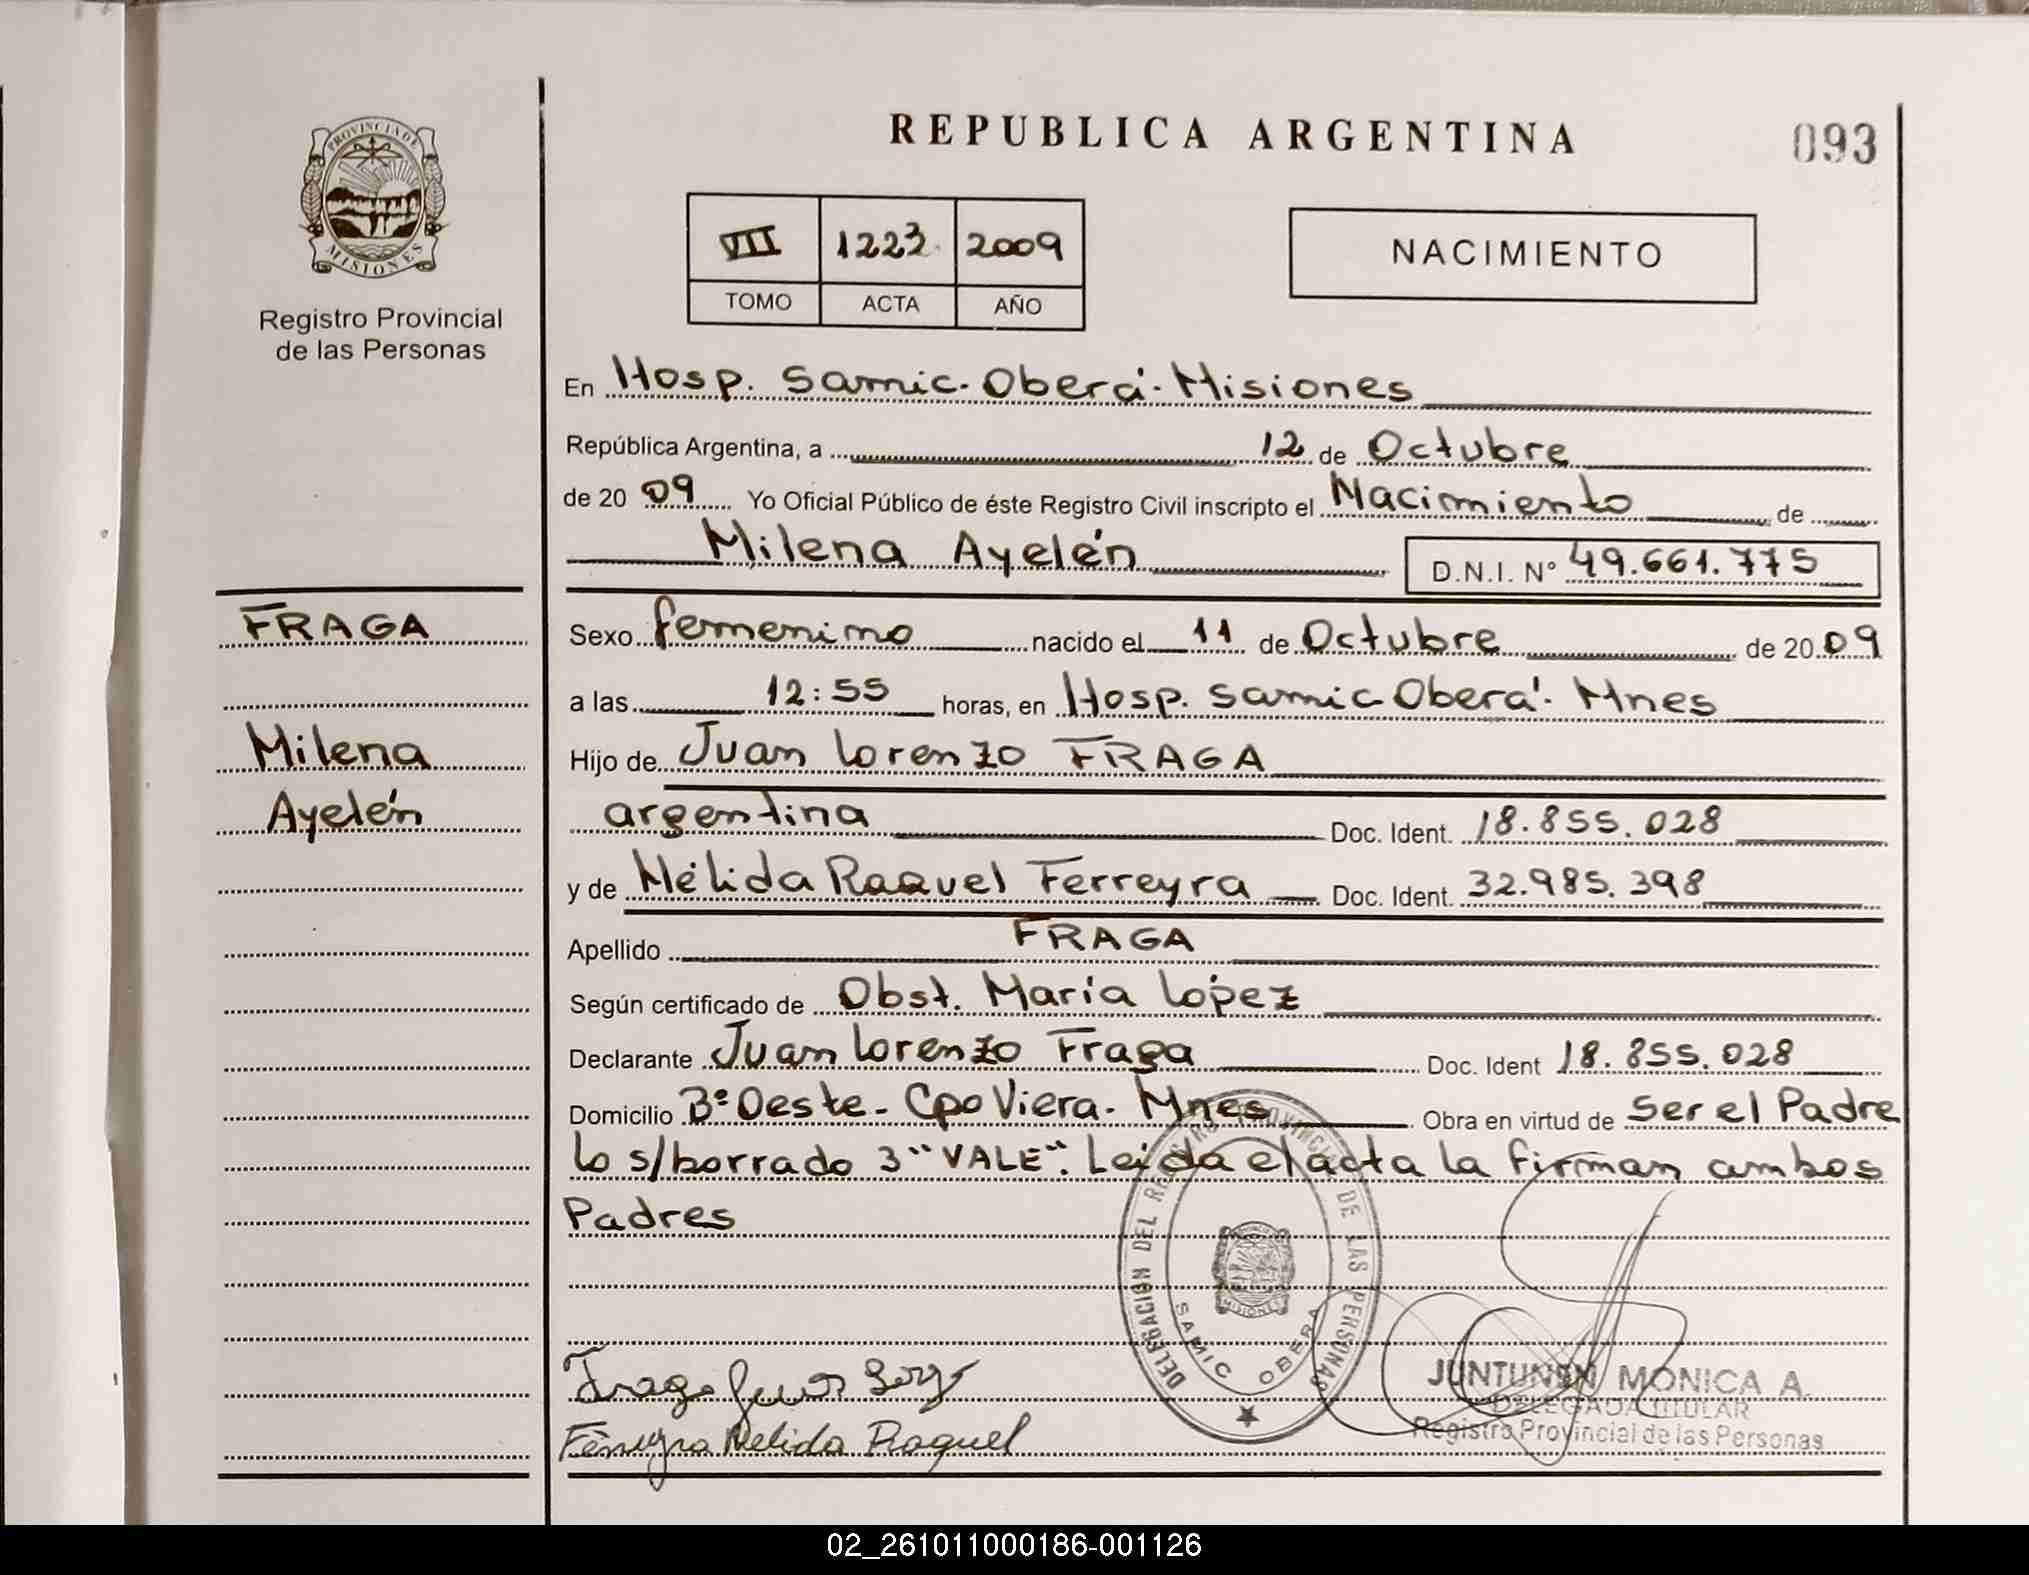 PROVINCIA DE
MISIONES
Registro Provincial
de las Personas
REPUBLICA ARGENTINA
093
VII 1223 2009
TOMO ACTA AÑO
NACIMIENTO
En Hosp. Samic. Oberá. Misiones
República Argentina, a 12 de Octubre
de 20 09 Yo Oficial Público de éste Registro Civil inscripto el Nacimiento de
Milena Ayelén D.N.I. Nº 49.661.775
FRAGA
Milena
Ayelén
Sexo femenino nacido el 11 de Octubre de 20 09
a las 12:55 horas, en Hosp. Samic Oberá. Mnes
Hijo de Juan Lorenzo FRAGA
argentina Doc. Ident. 18.855.028
y de Nélida Raquel Ferreyra Doc. Ident. 32.985.398
Apellido FRAGA
Según certificado de Obst. María López
Declarante Juan Lorenzo Fraga Doc. Ident 18.855.028
Domicilio Bº Oeste - Cpo Viera - Mnes Obra en virtud de Ser el Padre
lo s/borrado 3 "VALE". Leida el acta la firman ambos
Padres
DELEGACION DEL REGISTRO PROVINCIAL DE LAS PERSONAS
SAMIC OBERA
MISIONES
Fraga Juan
Ferreyra Nelida Raquel
JUNTUNEN MONICA A.
DELEGADA TITULAR
Registro Provincial de las Personas
02_261011000186-001126